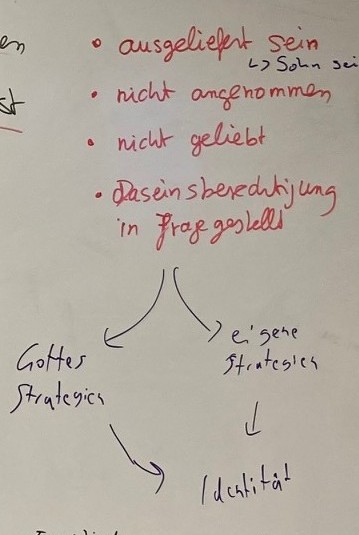 • ausgeliefert sein
↳ Sohn sei
• nicht angenommen
• nicht geliebt
• Daseinsberechtigung
in Frage gestellt
Gottes
Strategien
eigene
Strategien
Identität